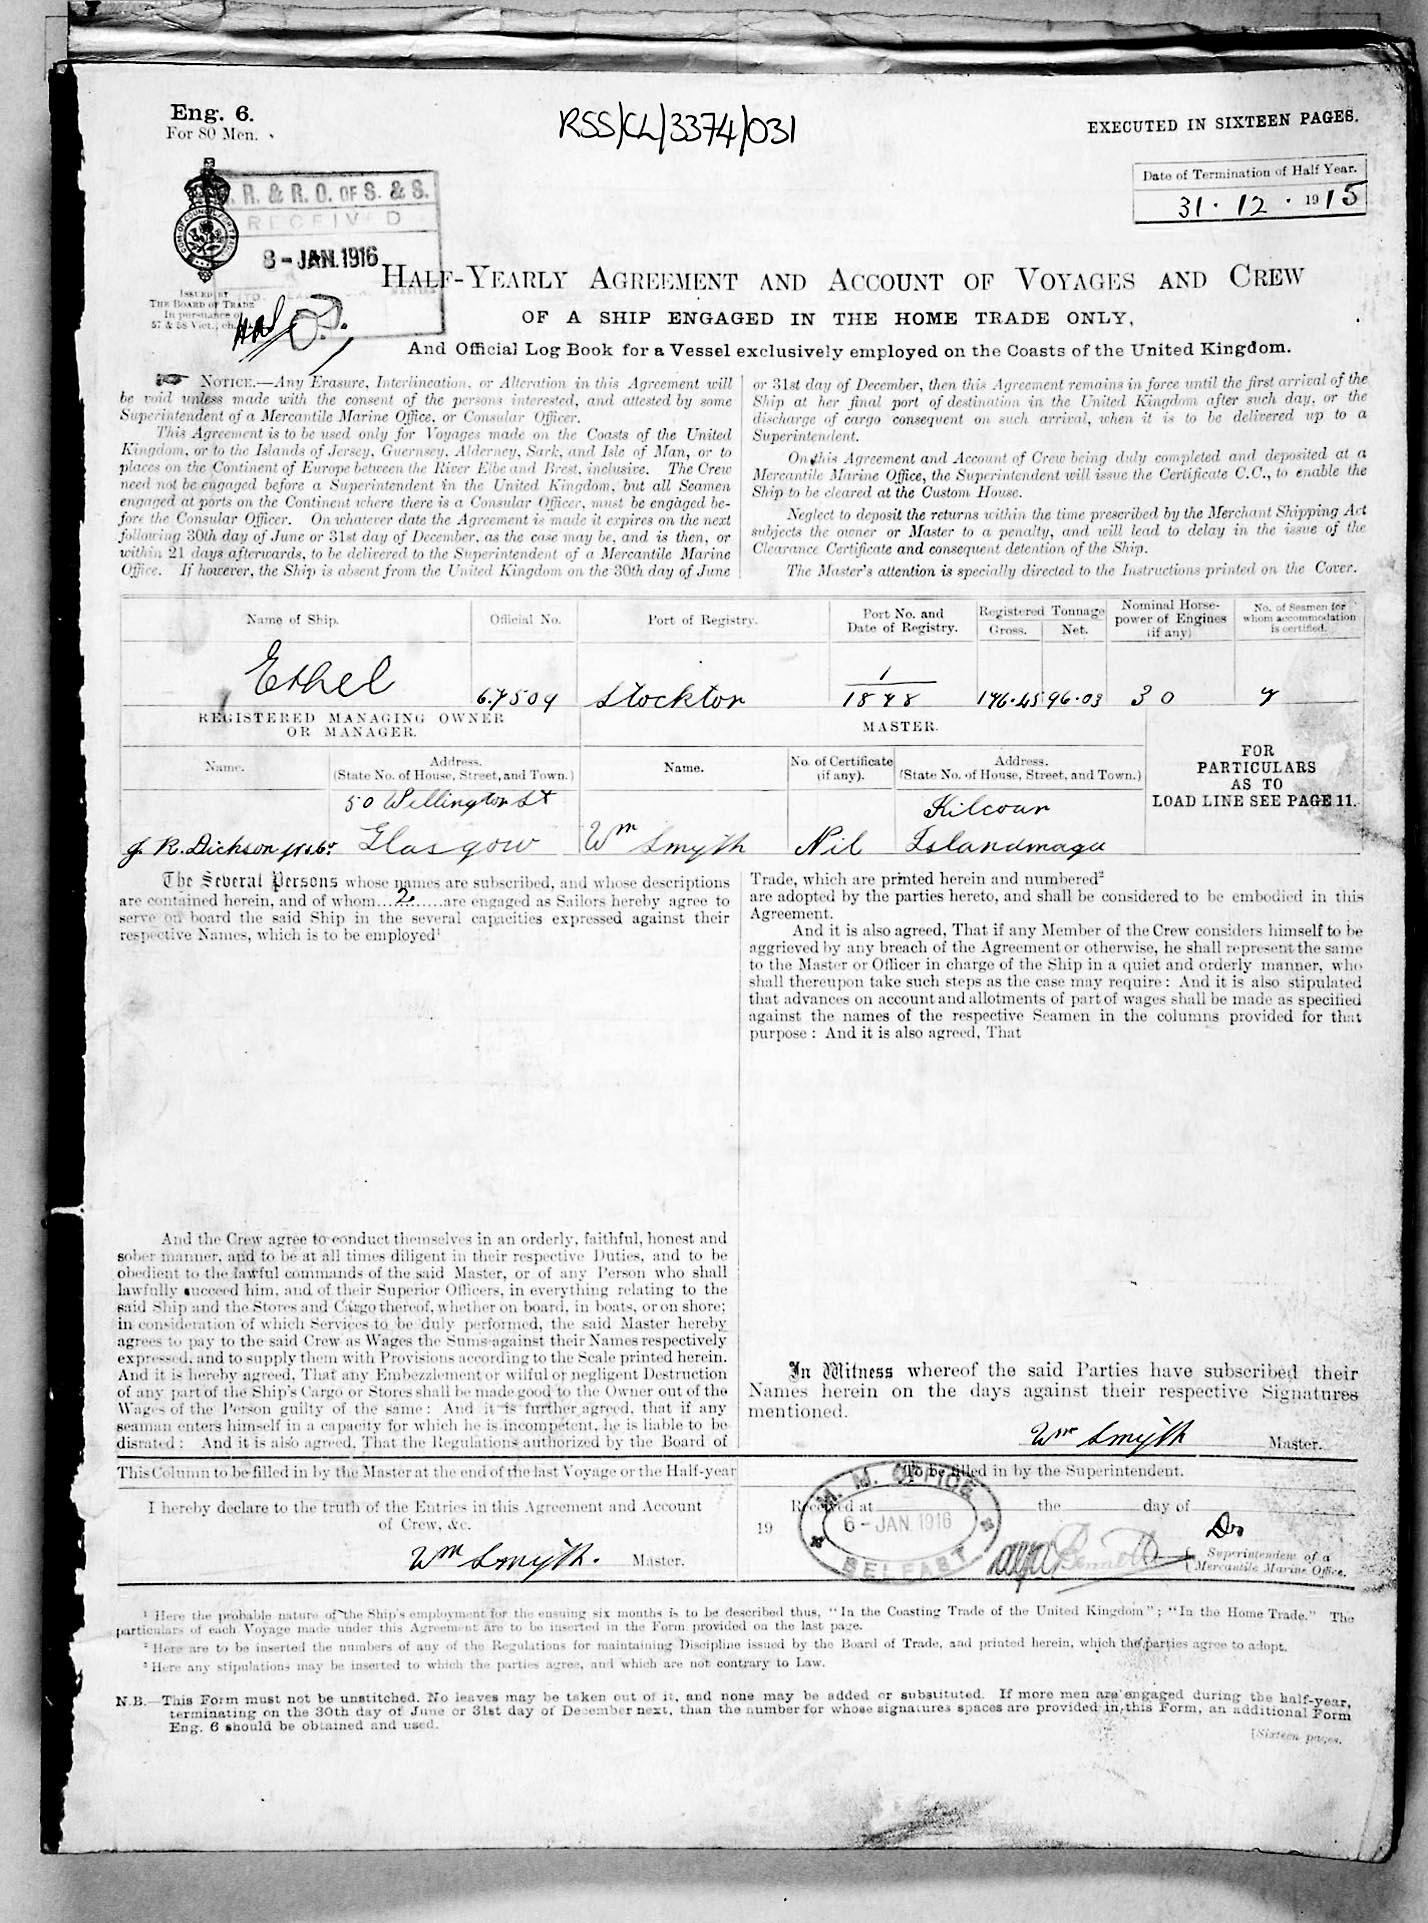 Eng. 6.
For 80 Men.
RSS/CL/3374/031
EXECUTED IN SIXTEEN PAGES.
Date of Termination of Half Year.
31 . 12 . 1915
R. & R. O. OF S. & S.
RECEIVED
8 - JAN. 1916
ISSUED BY
THE BOARD OF TRADE
In pursuance of
57 & 58 Vict., ch.
HALF-YEARLY AGREEMENT AND ACCOUNT OF VOYAGES AND CREW
OF A SHIP ENGAGED IN THE HOME TRADE ONLY,
And Official Log Book for a Vessel exclusively employed on the Coasts of the United Kingdom.
NOTICE.—Any Erasure, Interlineation, or Alteration in this Agreement will
be void unless made with the consent of the persons interested, and attested by some
Superintendent of a Mercantile Marine Office, or Consular Officer.
This Agreement is to be used only for Voyages made on the Coasts of the United
Kingdom, or to the Islands of Jersey, Guernsey, Alderney, Sark, and Isle of Man, or to
places on the Continent of Europe between the River Elbe and Brest, inclusive. The Crew
need not be engaged before a Superintendent in the United Kingdom, but all Seamen
engaged at ports on the Continent where there is a Consular Officer, must be engaged be-
fore the Consular Officer. On whatever date the Agreement is made it expires on the next
following 30th day of June or 31st day of December, as the case may be, and is then, or
within 21 days afterwards, to be delivered to the Superintendent of a Mercantile Marine
Office. If however, the Ship is absent from the United Kingdom on the 30th day of June
or 31st day of December, then this Agreement remains in force until the first arrival of the
Ship at her final port of destination in the United Kingdom after such day, or the
discharge of cargo consequent on such arrival, when it is to be delivered up to a
Superintendent.
On this Agreement and Account of Crew being duly completed and deposited at a
Mercantile Marine Office, the Superintendent will issue the Certificate C.C., to enable the
Ship to be cleared at the Custom House.
Neglect to deposit the returns within the time prescribed by the Merchant Shipping Act
subjects the owner or Master to a penalty, and will lead to delay in the issue of the
Clearance Certificate and consequent detention of the Ship.
The Master's attention is specially directed to the Instructions printed on the Cover.
Name of Ship. Official No. Port of Registry. Port No. and Date of Registry. Registered Tonnage Gross. Net. Nominal Horse-power of Engines (if any) No. of Seamen for whom accommodation is certified.
Ethel 67504 Stockton 1/1878 176.45 96.03 30 7
REGISTERED MANAGING OWNER
OR MANAGER.
MASTER.
Name. Address. (State No. of House, Street, and Town.) Name. No. of Certificate (if any). Address. (State No. of House, Street, and Town.)
FOR
PARTICULARS
AS TO
LOAD LINE SEE PAGE 11.
50 Wellington St Kilcoan
J. R. Dickson Glasgow Wm Smyth Nil Islandmagee
The Several Persons whose names are subscribed, and whose descriptions
are contained herein, and of whom...2......are engaged as Sailors hereby agree to
serve on board the said Ship in the several capacities expressed against their
respective Names, which is to be employed¹
And the Crew agree to conduct themselves in an orderly, faithful, honest and
sober manner, and to be at all times diligent in their respective Duties, and to be
obedient to the lawful commands of the said Master, or of any Person who shall
lawfully succeed him, and of their Superior Officers, in everything relating to the
said Ship and the Stores and Cargo thereof, whether on board, in boats, or on shore;
in consideration of which Services to be duly performed, the said Master hereby
agrees to pay to the said Crew as Wages the Sums against their Names respectively
expressed, and to supply them with Provisions according to the Scale printed herein.
And it is hereby agreed, That any Embezzlement or wilful or negligent Destruction
of any part of the Ship's Cargo or Stores shall be made good to the Owner out of the
Wages of the Person guilty of the same: And it is further agreed, that if any
seaman enters himself in a capacity for which he is incompetent, he is liable to be
disrated: And it is also agreed, That the Regulations authorized by the Board of
Trade, which are printed herein and numbered²
are adopted by the parties hereto, and shall be considered to be embodied in this
Agreement.
And it is also agreed, That if any Member of the Crew considers himself to be
aggrieved by any breach of the Agreement or otherwise, he shall represent the same
to the Master or Officer in charge of the Ship in a quiet and orderly manner, who
shall thereupon take such steps as the case may require: And it is also stipulated
that advances on account and allotments of part of wages shall be made as specified
against the names of the respective Seamen in the columns provided for that
purpose: And it is also agreed, That
In Witness whereof the said Parties have subscribed their
Names herein on the days against their respective Signatures
mentioned.
Wm Smyth Master.
This Column to be filled in by the Master at the end of the last Voyage or the Half-year
I hereby declare to the truth of the Entries in this Agreement and Account
of Crew, &c.
Wm Smyth. Master.
To be filled in by the Superintendent.
Received at the day of
19
M. M. OFFICE
6 - JAN. 1916
BELFAST
Superintendent of a
Mercantile Marine Office.
¹ Here the probable nature of the Ship's employment for the ensuing six months is to be described thus, "In the Coasting Trade of the United Kingdom"; "In the Home Trade." The
particulars of each Voyage made under this Agreement are to be inserted in the Form provided on the last page.
² Here are to be inserted the numbers of any of the Regulations for maintaining Discipline issued by the Board of Trade, and printed herein, which the parties agree to adopt.
³ Here any stipulations may be inserted to which the parties agree, and which are not contrary to Law.
N.B.—This Form must not be unstitched. No leaves may be taken out of it, and none may be added or substituted. If more men are engaged during the half-year,
terminating on the 30th day of June or 31st day of December next, than the number for whose signatures spaces are provided in this Form, an additional Form
Eng. 6 should be obtained and used.
[Sixteen pages.